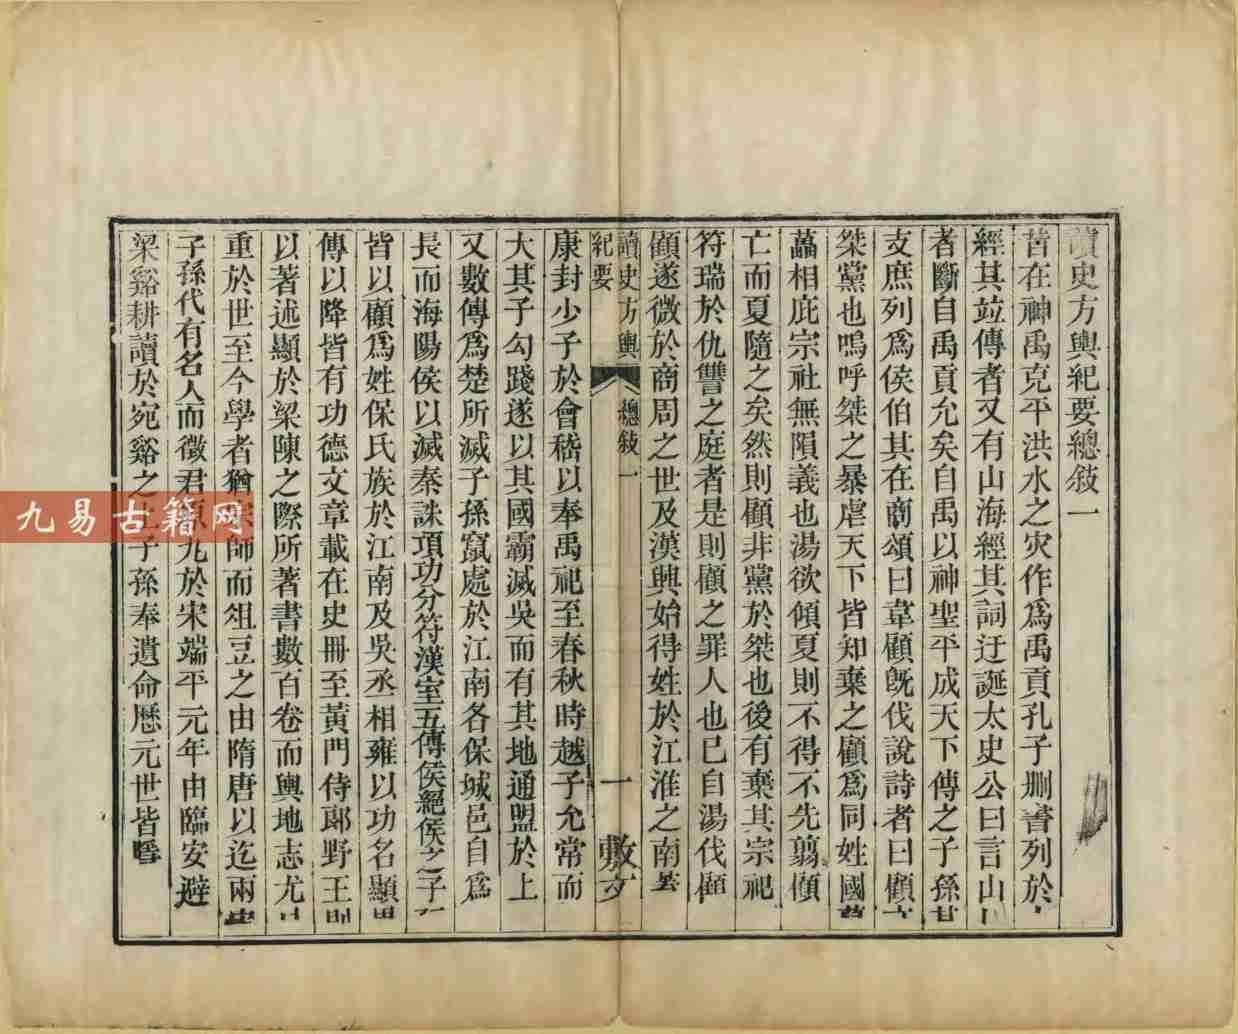 讀史方輿紀要總敍一
昔在神禹克平洪水之灾作爲禹貢孔子刪書列於
經其竝傳者又有山海經其詞迂誕太史公曰言山
者斷自禹貢允矣自禹以神聖平成天下傳之子孫其
支庶列爲侯伯其在商頌曰韋顧旣伐說詩者曰顧
桀黨也嗚呼桀之暴虐天下皆知棄之顧爲同姓國
藟相庇宗社無隕義也湯欲傾夏則不得不先翦顧
亡而夏隨之矣然則顧非黨於桀也後有棄其宗祀
符瑞於仇讐之庭者是則顧之罪人也已自湯伐顧
顧遂微於商周之世及漢興始得姓於江淮之南
讀史方輿紀要 總敍一 一 敷文
康封少子於會稽以奉禹祀至春秋時越子允常而
大其子勾踐遂以其國霸滅吳而有其地通盟於上
又數傳爲楚所滅子孫竄處於江南各保城邑自爲
長而海陽侯以滅秦誅項功分符漢室五傳侯絕侯之子
皆以顧爲姓保氏族於江南及吳丞相雍以功名顯
傳以降皆有功德文章載在史冊至黃門侍郎野王則
以著述顯於梁陳之際所著書數百卷而輿地志尤
重於世至今學者猶宗師而俎豆之由隋唐以迄兩宋
子孫代有名人而徵君原九於宋端平元年由臨安避
梁谿耕讀於宛谿之上子孫奉遺命歷元世皆
九易古籍网